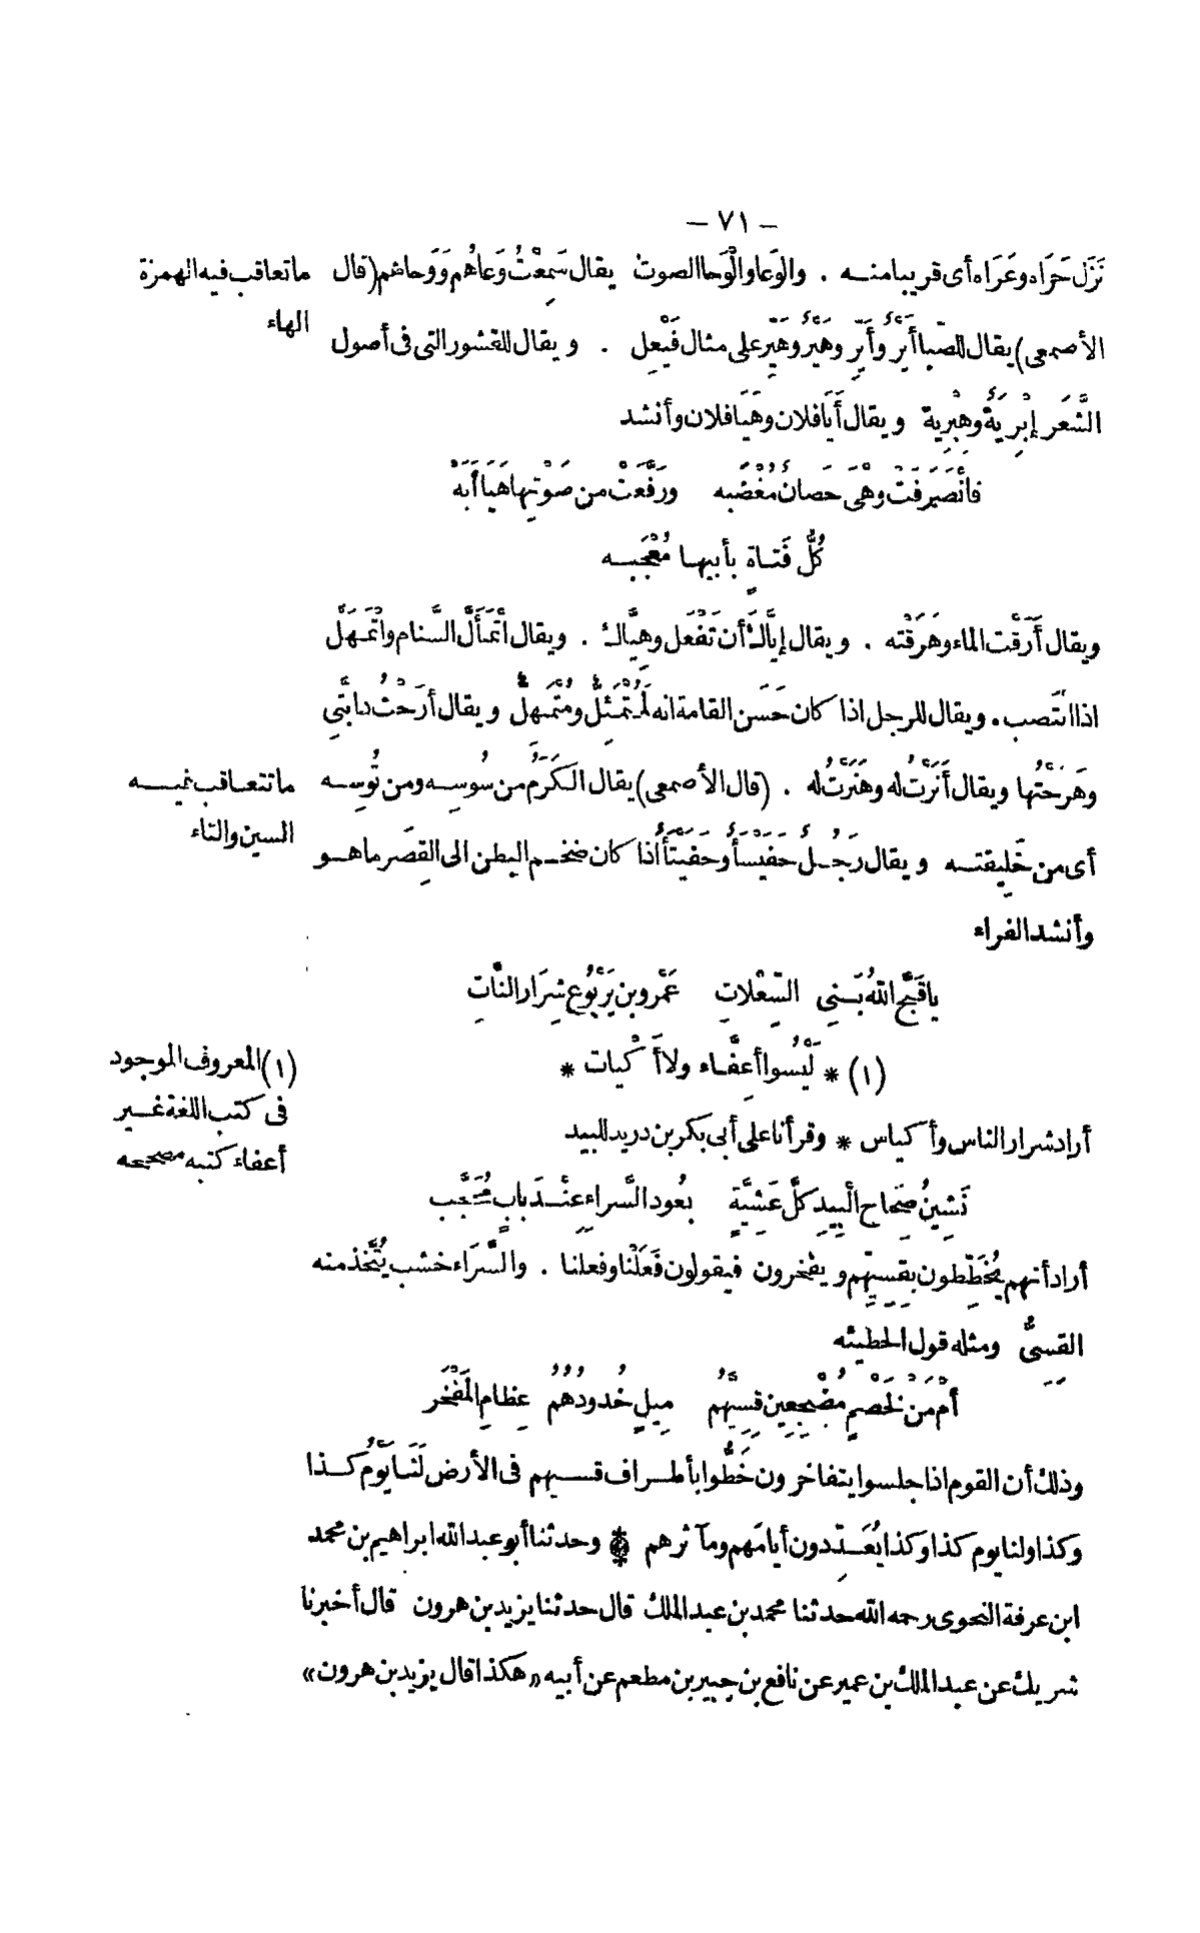 — ٧١ —
نَزَل حَرَاه وعَرَاه أى قريبا منه . والوَعا والْوَحا الصوت يقال سَمِعْتُ وَعَاهُم وَوَحاهم (قال
ما تعاقب فيه الهمزة
الهاء
الأصمعى) يقال للصَّبا أَيْرُ وأَيِّر وهَيْرُ وهَيِّر على مثال فَيْعِل . ويقال للقشور التى فى أصول
الشَّعَر إبْرِيَةُ وهِبْرِية ويقال أَيَا فلان وهَيَا فلان وأنشد
فانْصَرَفَتْ وهْىَ حَصَانٌ مُغْضَبه ورَفَّعَتْ من صَوْتِها هَيَا أَبَهْ
كُلُّ فَتاةٍ بأبيها مُعْجَبه
ويقال أَرَقْت الماء وهَرَقْته . ويقال إيَّاكَ أن تَفْعَل وهِيَّاك . ويقال اتْمَأَلَّ السَّنام واتْمَهَلَّ
اذا انتَصب . ويقال للرجل اذا كان حَسَن القامة انه لَمُتْمَئِلٌّ ومُتْمَهِلٌّ ويقال أرَحْتُ دابَّتِى
وهَرَحْتُها ويقال أَنَرْتُ له وهَنَرْتُ له . (قال الأصمعى) يقال الكَرَمُ من سُوسِه ومن تُوسِه
ما تتعاقب فيه
السين والتاء
أى من خَلِيقته ويقال رَجُلُ حَفَيْسَأُ وحَفَيْتَأُ اذا كان ضخم البطن الى القِصَر ما هو
وأنشد الفراء
يا قَبَّح اللهُ بَنِى السِّعْلاتِ عَمْرو بن يَرْبُوعٍ شِرَار النَّاتِ
(١) * لَيْسُوا أعِفَّاء ولا أَكْيات *
(١) المعروف الموجود
فى كتب اللغة غير
أعفاء كتبه مصححه
أراد شرار الناس وأكياس * وقرأنا على أبى بكر بن دريد للبيد
نَشِينُ صِحَاحِ الْبِيدِ كلَّ عَشِيَّةٍ بعُود السَّراءِ عِنْدَ بابٍ مُحَجَّب
أراد أنهم يُخَطِّطون بقِسِيِّهم ويفخرون فيقولون فَعَلْنا وفعلنا . والسَّرَاء خشب يُتَّخذ منه
القِسِىُّ ومثله قول الحطيئه
أمْ مَنْ لخَصْمٍ مُضْجِعِين قِسِيَّهُم مِيلٍ خُدودُهُمُ عِظامِ المَفْخَر
وذلك أن القوم اذا جلسوا يتفاخرون خَطُّوا بأطراف قسيهم فى الأرض لَنَا يَوْمُ كذا
وكذا ولنا يوم كذا وكذا يُعَدِّدون أيامَهم ومآثرهم * وحدثنا أبو عبد الله ابراهيم بن محمد
ابن عرفة النحوى رحمه الله حدثنا محمد بن عبد الملك قال حدثنا يزيد بن هرون قال أخبرنا
شريك عن عبد الملك بن عمير عن نافع بن جبير بن مطعم عن أبيه «هكذا قال يزيد بن هرون»